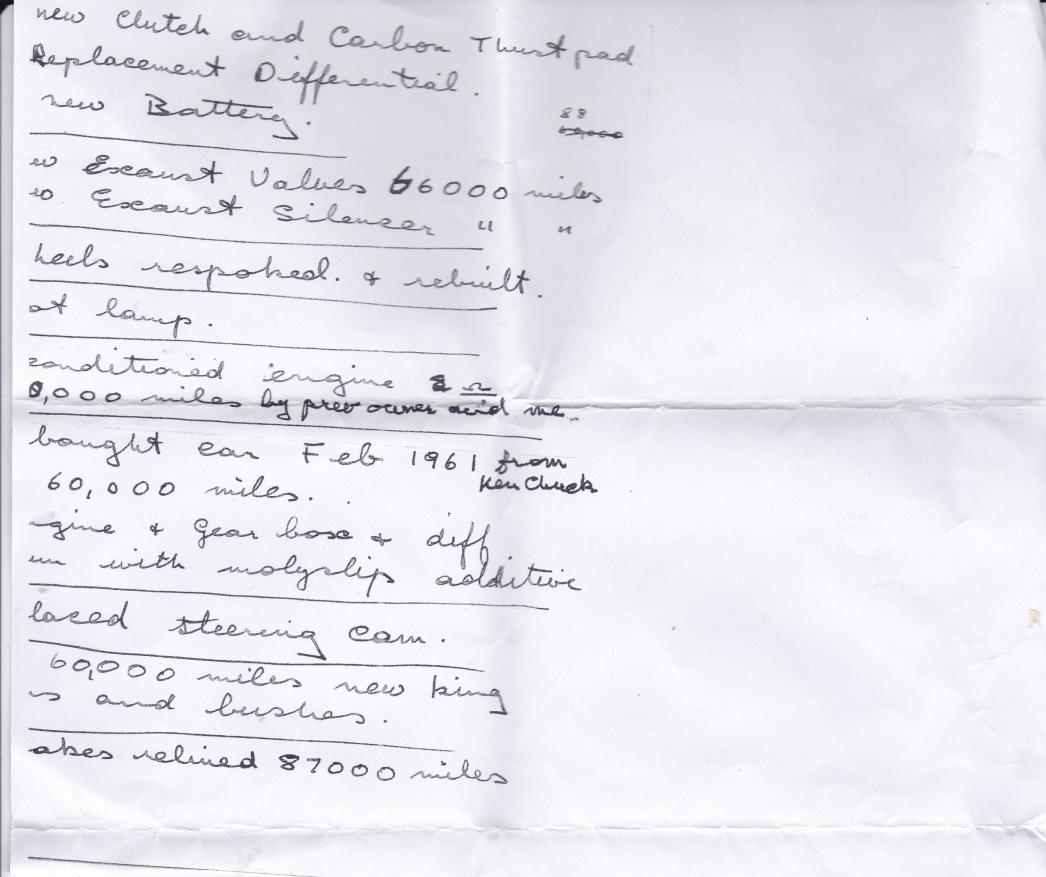 new Clutch and Carbon Thust pad
Replacement Differential.
new Battery.
88
ew Exaust Valves 66000 miles
ew Exaust Silencer " "
heels respoked. & rebuilt.
ot lamp.
conditioned engine
0,000 miles by prev owner and me.
bought car Feb 1961 from
Ken Chuck
60,000 miles.
ngine & Gear box & diff
un with molyslip additive
laced steering cam.
60,000 miles new king
ns and bushes.
akes relined 87000 miles